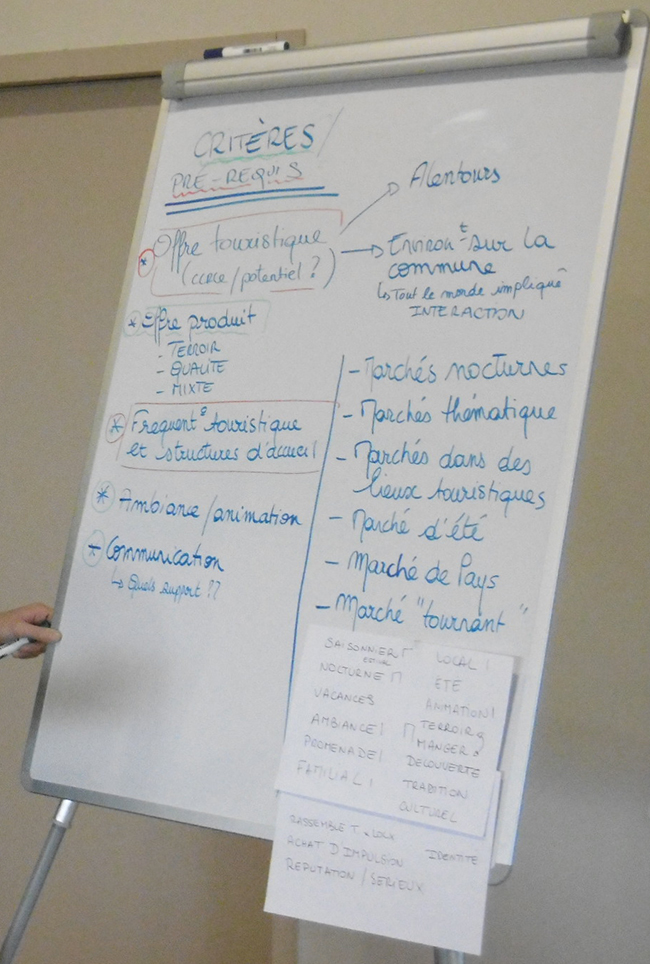 CRITÈRES /
PRÉ-REQUIS
* Offre touristique
( /potentiel ?)
→ Alentours
→ Environt sur la
commune
↳ Tout le monde impliqué
INTERACTION
* Offre produit
- TERROIR
- QUALITÉ
- MIXTE
* Frequent° touristique
et structures d'accueil
* Ambiance/animation
* Communication
↳ Quels support ??
- Marchés nocturnes
- Marchés thématique
- Marchés dans des
lieux touristiques
- Marché d'été
- Marché de Pays
- Marché "tournant"
SAISONNIER
NOCTURNE
VACANCES
AMBIANCE
PROMENADE
FAMILIAL
LOCAL
ETE
ANIMATION
TERROIR
MANGER
DECOUVERTE
TRADITION
CULTUREL
RASSEMBLE T.
ACHAT D'IMPULSION
REPUTATION / SERIEUX
IDENTITE